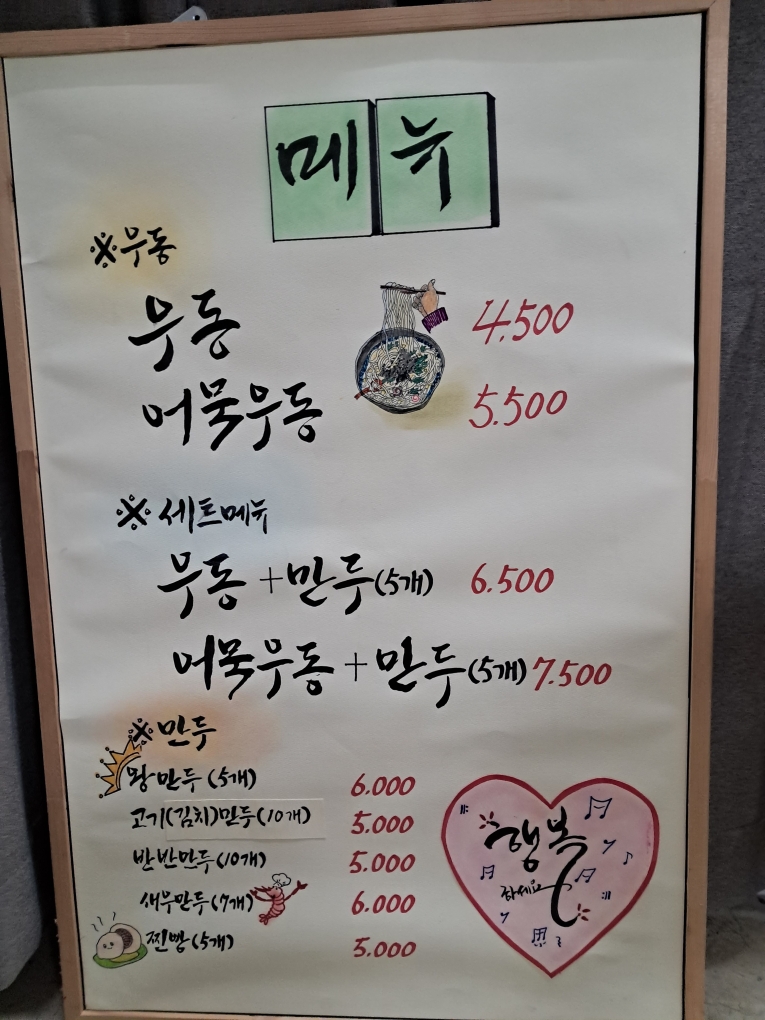 메뉴
※우동
우동 4.500
어묵우동 5.500
※ 세트메뉴
우동 + 만두(5개) 6.500
어묵우동 + 만두(5개) 7.500
※만두
왕만두(5개) 6.000
고기(김치)만두(10개) 5.000
반반만두(10개) 5.000
새우만두(7개) 6.000
찐빵(5개) 5.000
행복
하세요